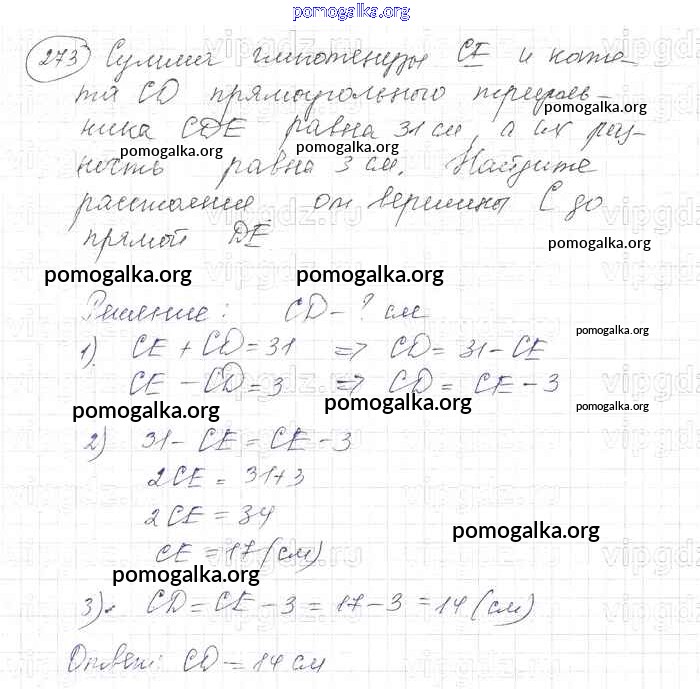 pomogalka.org
273 Сумма гипотенузы CE и кате-
та CD прямоугольного треуголь-
pomogalka.org
ника CDE равна 31 см, а их раз-
pomogalka.org pomogalka.org
ность равна 3 см. Найдите
расстояние от вершины C до
прямой DE
pomogalka.org
pomogalka.org pomogalka.org
Решение: CD - ? см
pomogalka.org
1). CE + CD = 31 => CD = 31 - CE
CE - CD = 3 => CD = CE - 3
pomogalka.org pomogalka.org pomogalka.org
2) 31 - CE = CE - 3
2CE = 31+3
2CE = 34
pomogalka.org
CE = 17 (см)
pomogalka.org
3). CD = CE - 3 = 17 - 3 = 14 (см)
Ответ: CD = 14 см